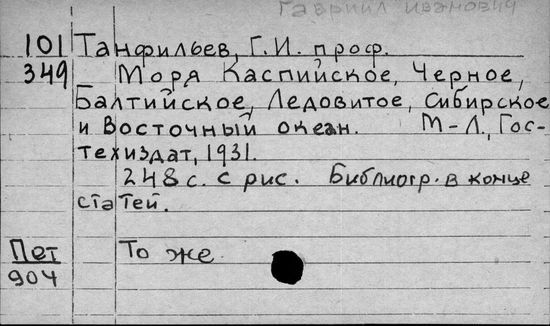 Гавриил Иванович
101 Танфильев, Г.И. проф.
349 Моря Каспийское, Черное,
Балтийское, Ледовитое, Сибирское
и Восточный океан. М-Л., Гос-
техиздат, 1931.
248 с. с рис. Библиогр. в конце
статей.
Пет То же
904